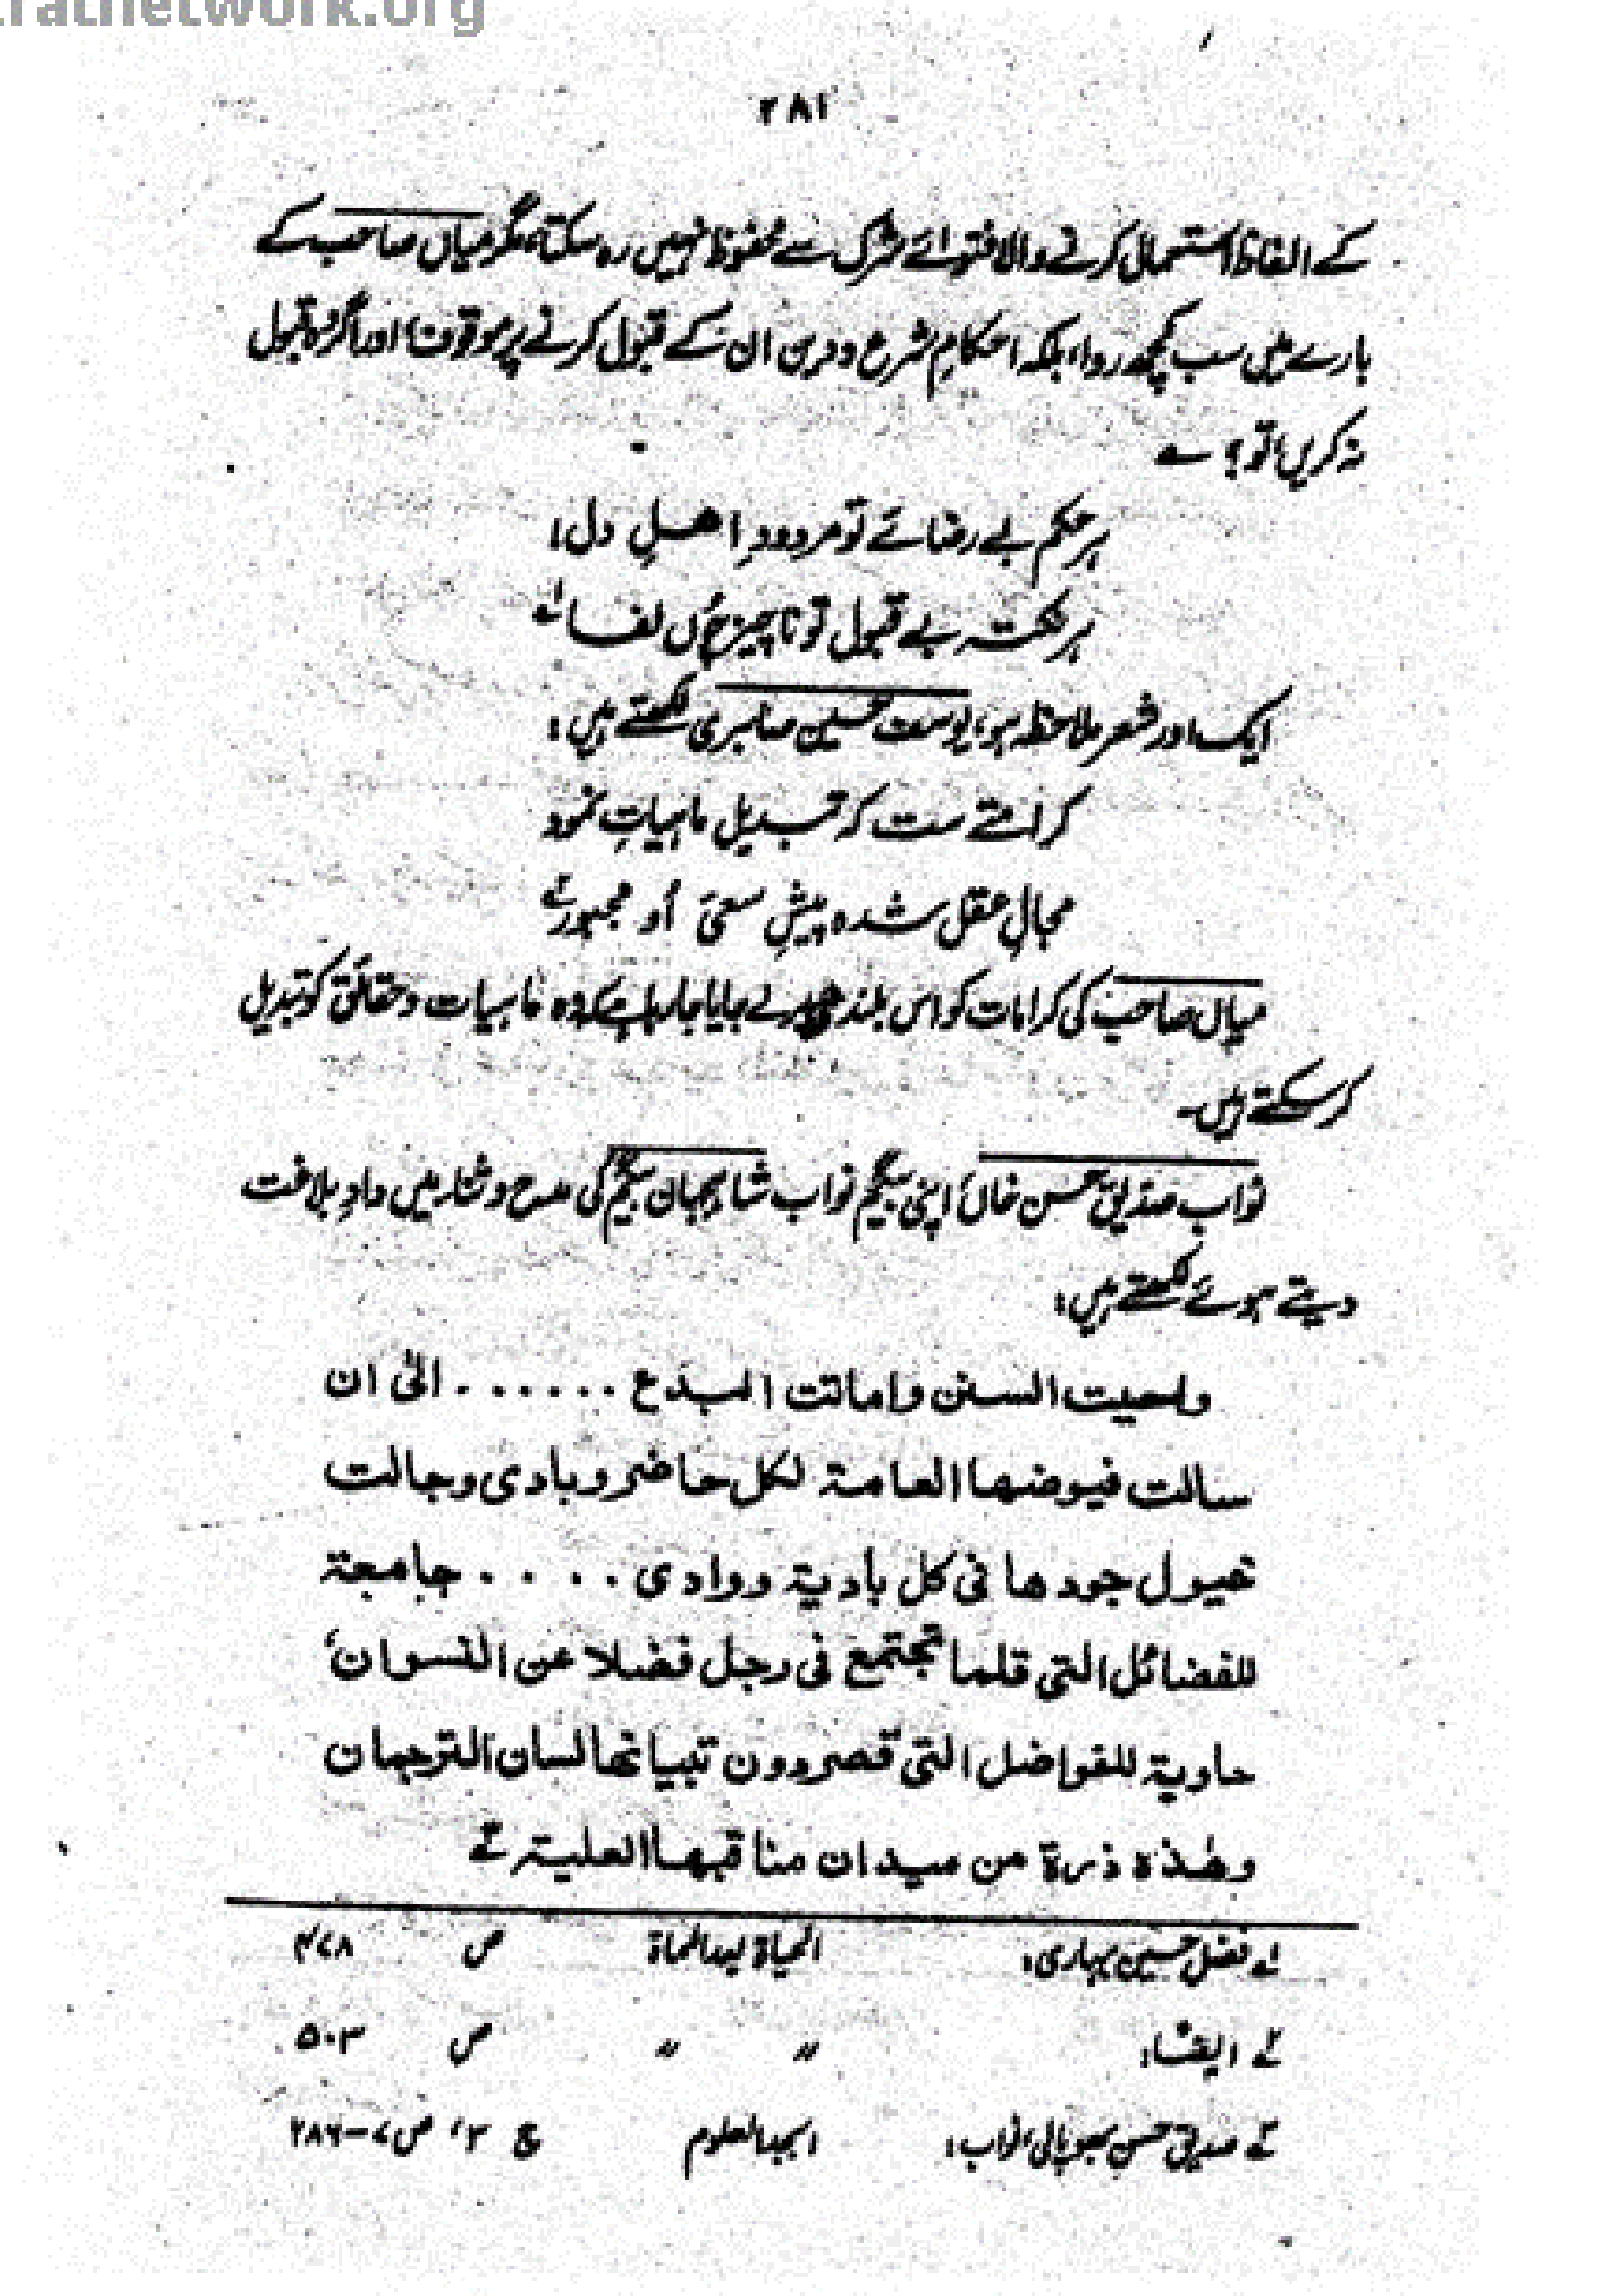 ratnetwork.org
۲۸۱
کے الفاظ استعمال کرنے والا فتوائے شرک سے محفوظ نہیں رہ سکتا، مگر میاں صاحب کے
بارے میں سب کچھ روا، بلکہ احکامِ شرع و دین ان کے قبول کرنے پر موقوف، اور اگر وہ قبول
نہ کریں تو؟ ے
ہر حکم بے رضائے تو مردودِ اھلِ دل!
ہر نکتہ بے قبول تو ناچیز چوں لغا لے
ایک اور شعر ملاحظہ ہو، یوسف حسین صابری لکھتے ہیں:
کرامتے ست کہ تبدیل ماہیاتِ نمود
مجالِ عقل شدہ پیشِ سعیَ اُو مجبور ٢ے
میاں صاحب کی کرامات کو اس بلند پر لے جایا جا رہا ہے کہ وہ ماہیات و حقائق کو تبدیل
کر سکتے ہیں۔
نواب صدیق حسن خاں، اپنی بیگم نواب شاہجہان بیگم کی مدح و ثناء میں دادِ بلاغت
دیتے ہوئے لکھتے ہیں:
واحییت السنن وامانت البدع ...... الیٰ ان
سالت فیوضھا العامۃ لکل حاضر وبادی وجالت
خیول جودھا فی کل بادیۃ ووادی .... جامعۃ
للفضائل التی قلما تجتمع فی رجل فضلا عن النسوان،
حاویۃ للفواضل التی قصر دون تبیانھا لسان الترجمان
وھٰذہ ذرۃ من میدان مناقبھا العلیۃ ٣ے
لے فضل حسین بہاری: الحیاۃ بعد المماۃ ص ۴۷۸
٢ے ایضًا: 〃 〃 ص ۵۰۳
٣ے صدیق حسن بھوپالی، نواب: ابجد العلوم ج ۳، ص ۷-۲۸۶